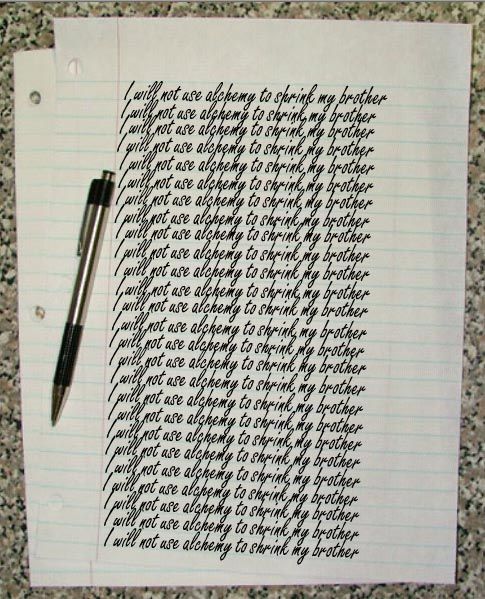 I will not use alchemy to shrink my brother
I will not use alchemy to shrink my brother
I will not use alchemy to shrink my brother
I will not use alchemy to shrink my brother
I will not use alchemy to shrink my brother
I will not use alchemy to shrink my brother
I will not use alchemy to shrink my brother
I will not use alchemy to shrink my brother
I will not use alchemy to shrink my brother
I will not use alchemy to shrink my brother
I will not use alchemy to shrink my brother
I will not use alchemy to shrink my brother
I will not use alchemy to shrink my brother
I will not use alchemy to shrink my brother
I will not use alchemy to shrink my brother
I will not use alchemy to shrink my brother
I will not use alchemy to shrink my brother
I will not use alchemy to shrink my brother
I will not use alchemy to shrink my brother
I will not use alchemy to shrink my brother
I will not use alchemy to shrink my brother
I will not use alchemy to shrink my brother
I will not use alchemy to shrink my brother
I will not use alchemy to shrink my brother
I will not use alchemy to shrink my brother
I will not use alchemy to shrink my brother